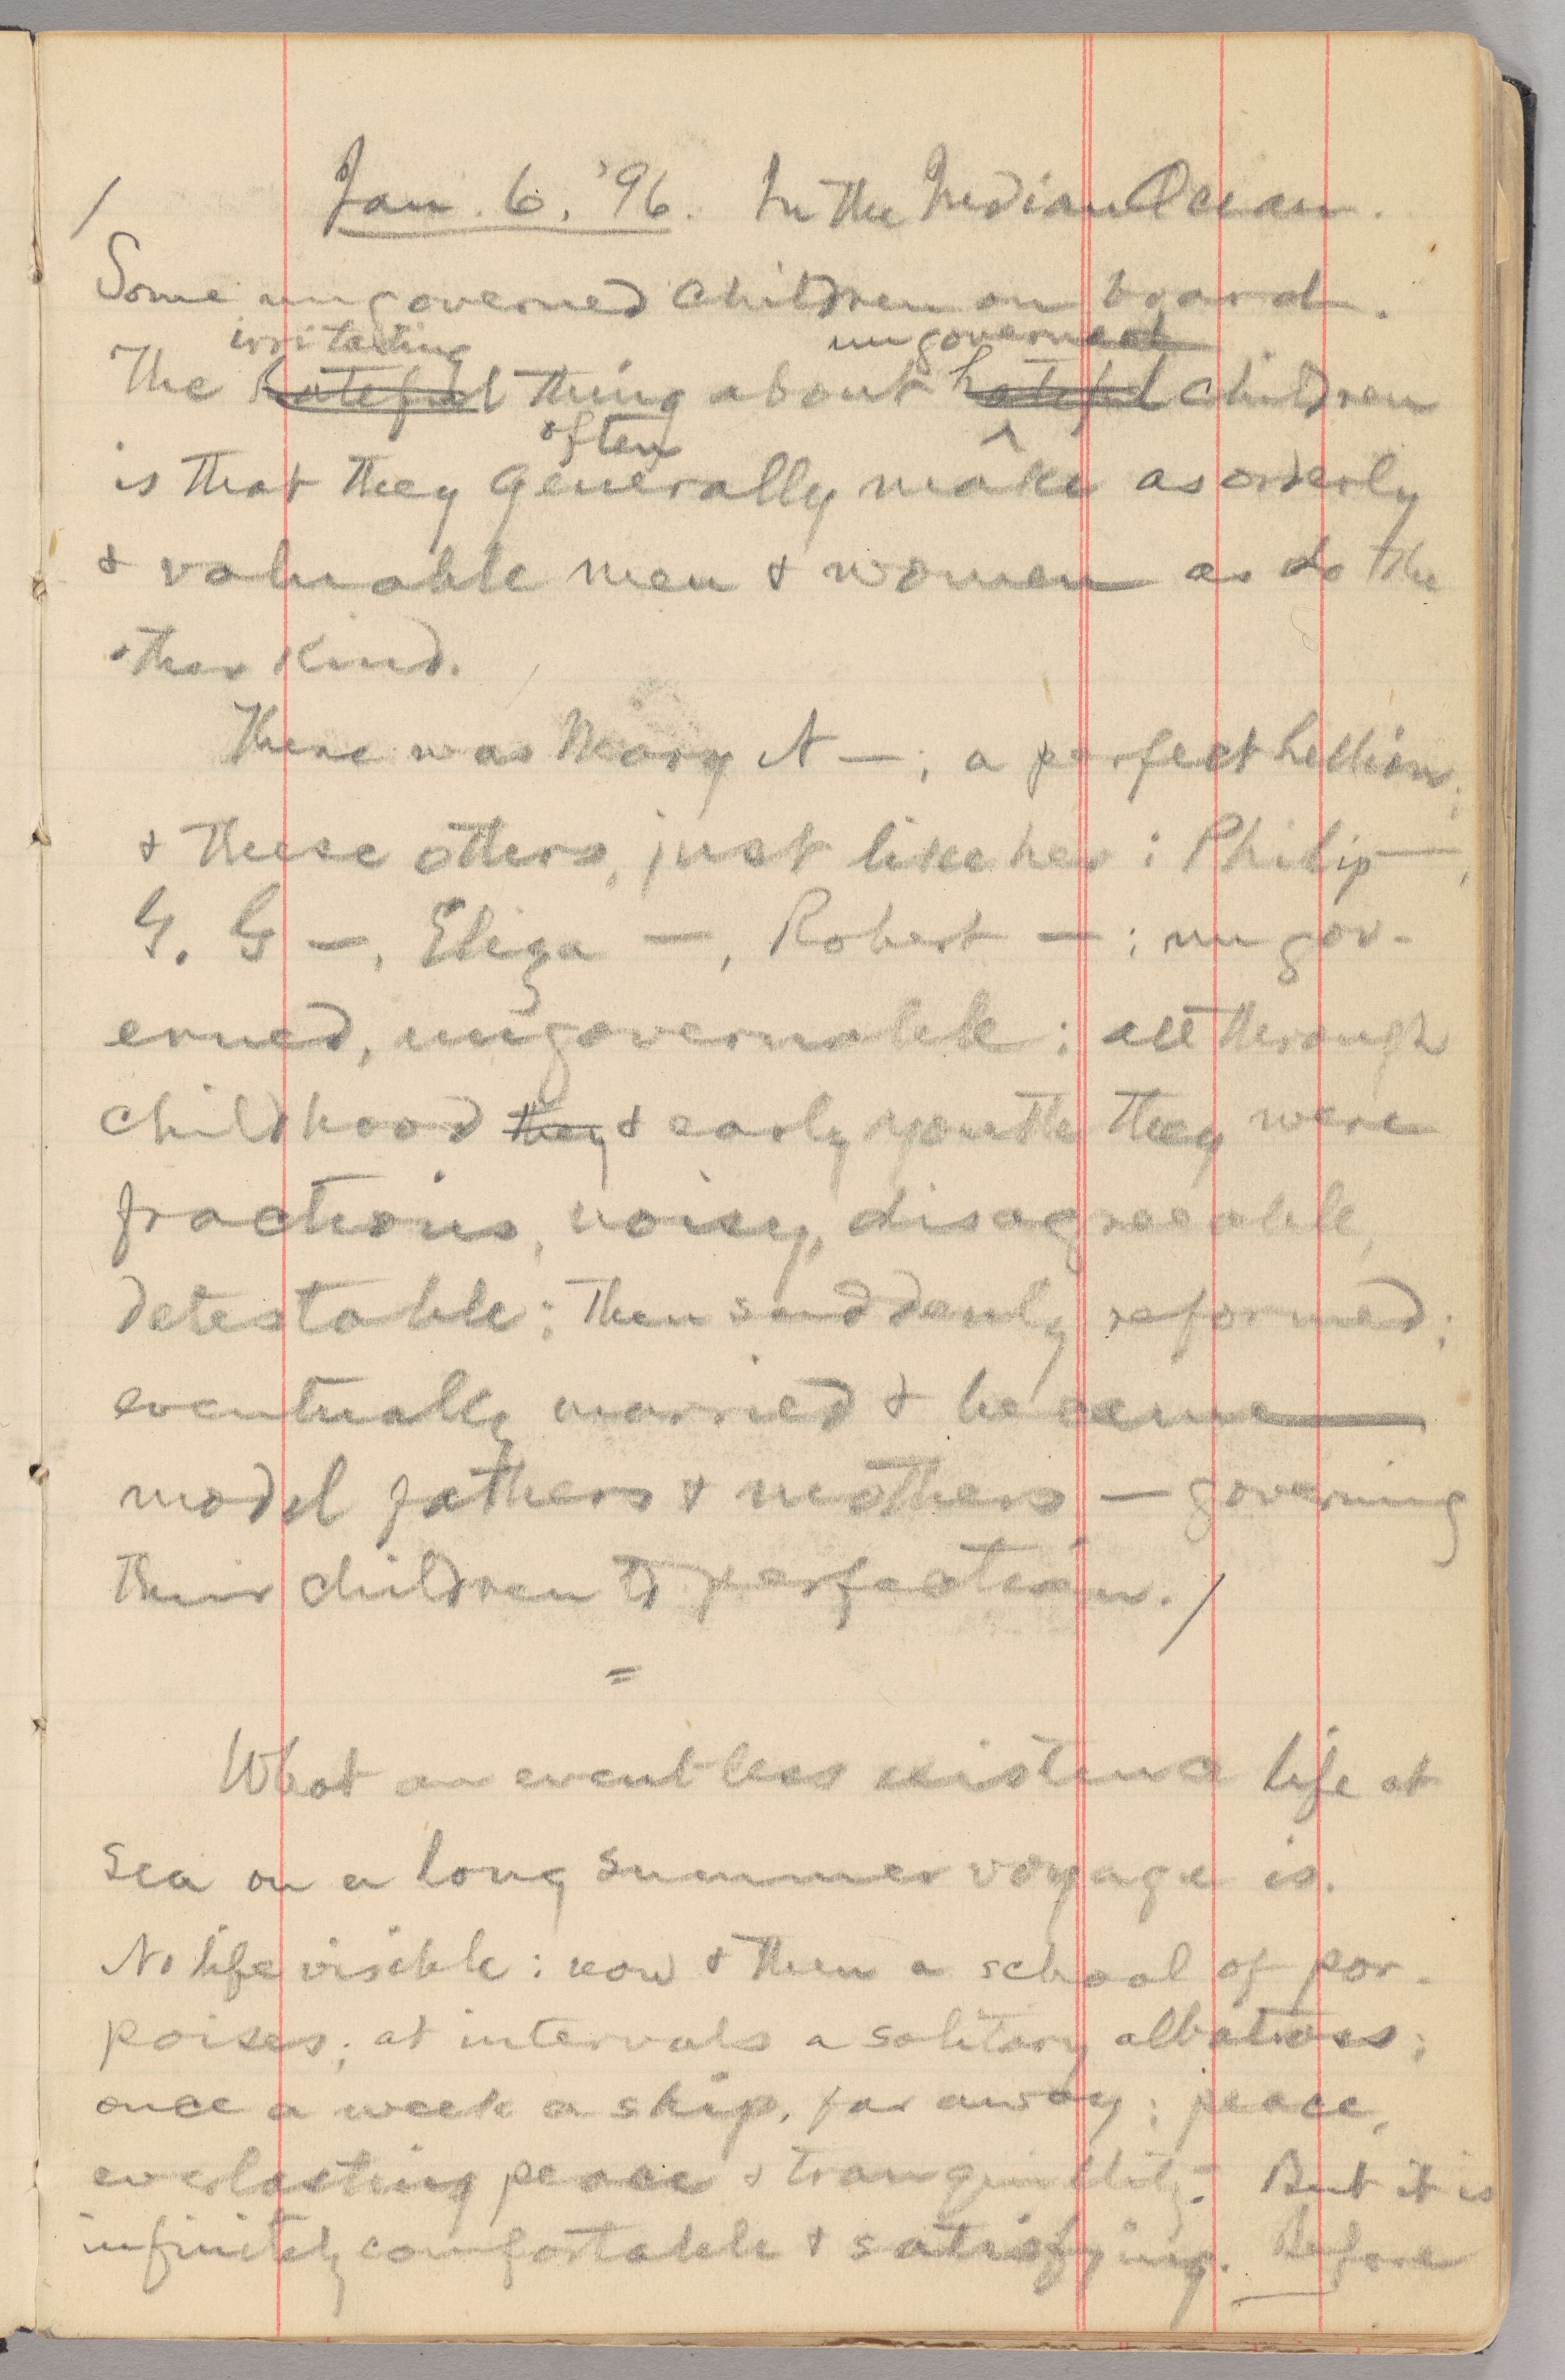 / Jan. 6, '96. In the Indian Ocean.
Some ungoverned children on board.
irritating ungoverned
The hateful thing about hateful children
often ^
is that they generally make as orderly
& valuable men & women as do the
other kind.
There was Mary A—; a perfect hellion;
& these others, just like her: Philip —,
G. G —, Eliza —, Robert —: ungov-
erned, ungovernable; all through
childhood they & early youth they were
fractious, noisy, disagreeable,
detestable; then suddenly reformed;
eventually married & became
model fathers & mothers — governing
their children to perfection. /
=
What an eventless existence life at
sea on a long summer voyage is.
No life visible: now & then a school of por-
poises; at intervals a solitary albatross;
once a week a ship, far away; peace,
everlasting peace & tranquillity. But it is
infinitely comfortable & satisfying. Before